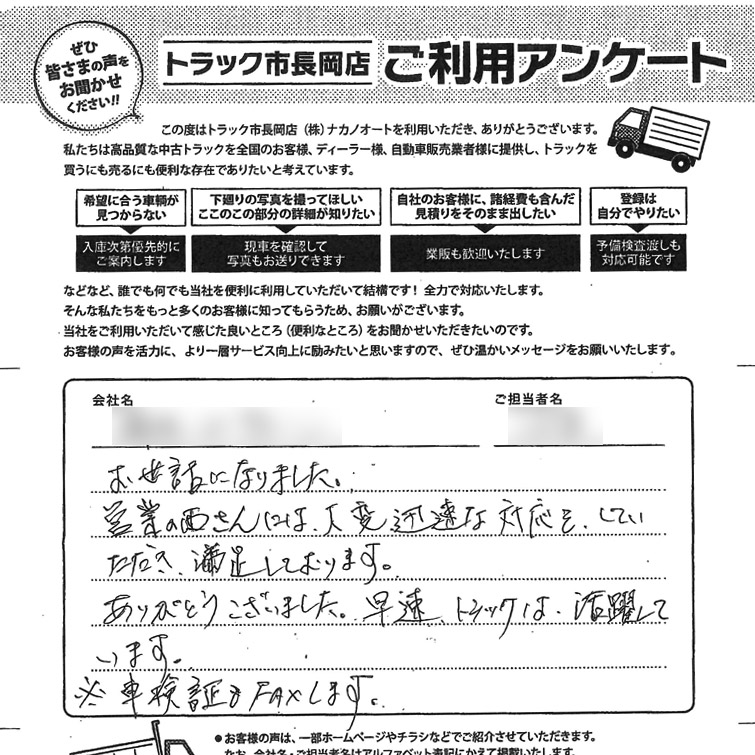 ぜひ
皆さまの声を
お聞かせ
ください!!
トラック市長岡店 ご利用アンケート
この度はトラック市長岡店(株)ナカノオートを利用いただき、ありがとうございます。
私たちは高品質な中古トラックを全国のお客様、ディーラー様、自動車販売業者様に提供し、トラックを
買うにも売るにも便利な存在でありたいと考えています。
希望に合う車輌が
見つからない
入庫次第優先的に
ご案内します
下廻りの写真を撮ってほしい
ここのこの部分の詳細が知りたい
現車を確認して
写真もお送りできます
自社のお客様に、諸経費も含んだ
見積りをそのまま出したい
業販も歓迎いたします
登録は
自分でやりたい
予備検査渡しも
対応可能です
などなど、誰でも何でも当社を便利に利用していただいて結構です!全力で対応いたします。
そんな私たちをもっと多くのお客様に知ってもらうため、お願いがございます。
当社をご利用いただいて感じた良いところ(便利なところ)をお聞かせいただきたいのです。
お客様の声を活力に、より一層サービス向上に励みたいと思いますので、ぜひ温かいメッセージをお願いいたします。
会社名 ご担当者名
お世話になりました。
営業の西さんには、大変迅速な対応を、してい
ただき、満足しております。
ありがとうございました。早速、トラックは、活躍して
います。
※車検証もFAXします。
●お客様の声は、一部ホームページやチラシなどでご紹介させていただきます。
なお、会社名・ご担当者名はアルファベット表記にかえて掲載いたします。